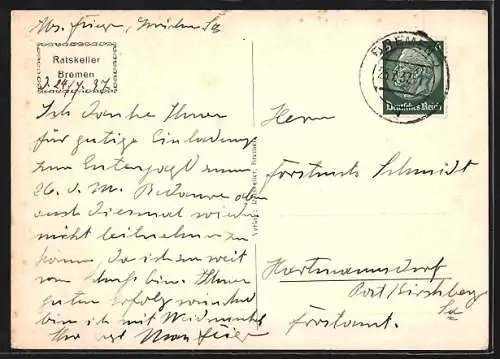 Ratskeller
Bremen
d. 24/4. 37
Ich danke Ihnen
für gütige Einladung
zum
26. d. M. Bedaure aber
auch diesmal wieder
nicht teilnehmen zu
können, da ich zu weit
vom bin. Ihnen
guten Erfolg wünschend
bin ich mit Weidmannsheil
Ihr
Verlag: Ratskeller, Bremen
BREMEN
Deutsches Reich
Herrn
Schmidt
Hartmannsdorf
Post Kirchberg
Sa
Forstamt.